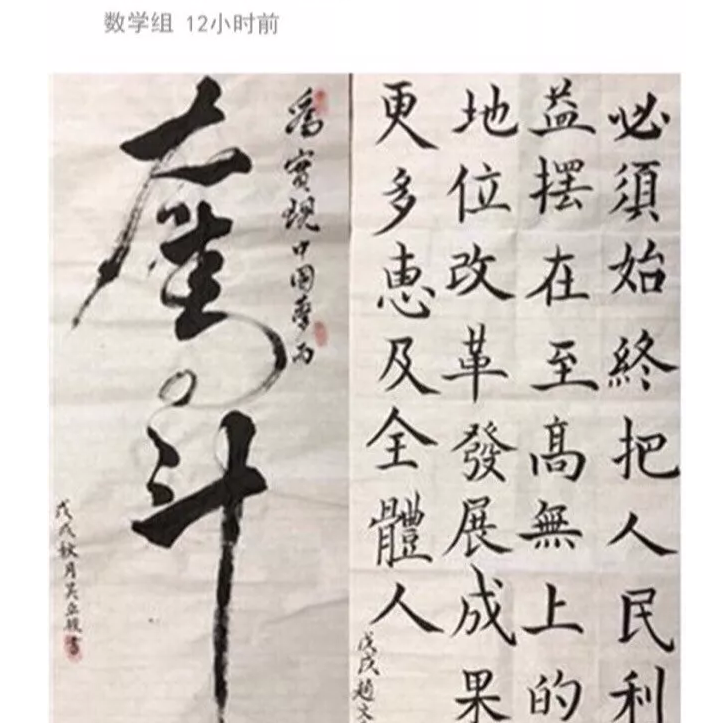 数学组 12小时前
必須始終把人民利
益摆在至高無上的
地位改革發展成果
更多惠及全體人
戊戌趙文
為實現中國夢而
奮斗
戊戌秋月吴